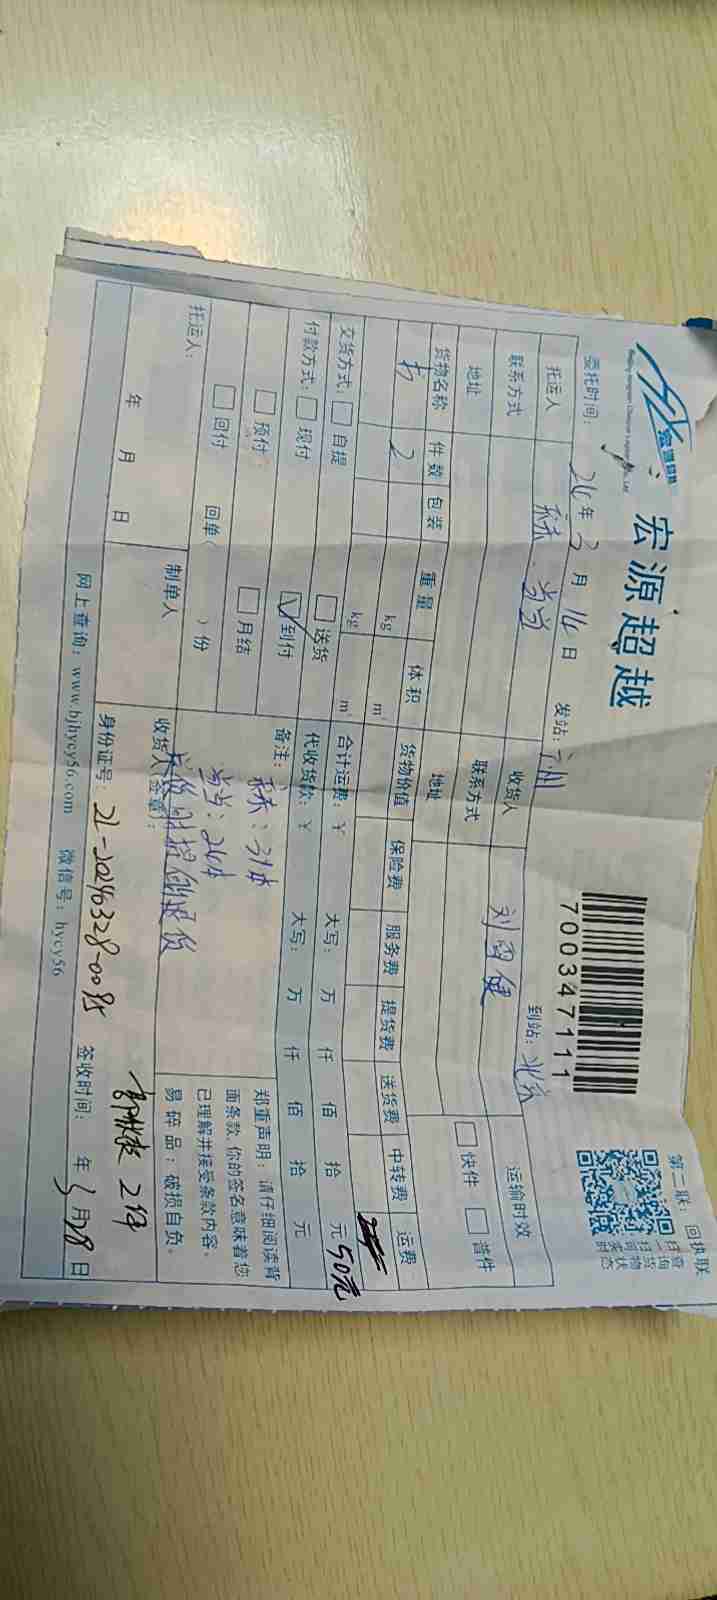 宏源超越
700347111
第二联：回执联
扫扫查询货物状态
委托时间：24年3月14日 发站：广州 到站：北京
托运人 秝. 当当 收货人 运输时效
联系方式 联系方式 快件 普件
地址 地址
货物名称 件数 包装 重量 体积 货物价值 保险费 服务费 提货费 送货费 中转费 运费
书 2 kg m³
kg m³
交货方式： 自提 送货 合计运费：¥ 大写： 万 仟 佰 拾 元 50元
付款方式： 现付 到付 代收货款：¥ 大写： 万 仟 佰 拾 元
预付 月结 备注：
回付 回单（ ）份
秝：31本
当当：26本
郑重声明：请仔细阅读背
面条款 你的签名意味着您
已理解并接受条款内容。
易碎品：破损自负。
托运人： 制单人 收货人(签章)： 2件
年 月 日 身份证号：ZL-20240328-0085 签收时间： 年3月28日
网上查询：www.bjhycy56.com 微信号：hycy56